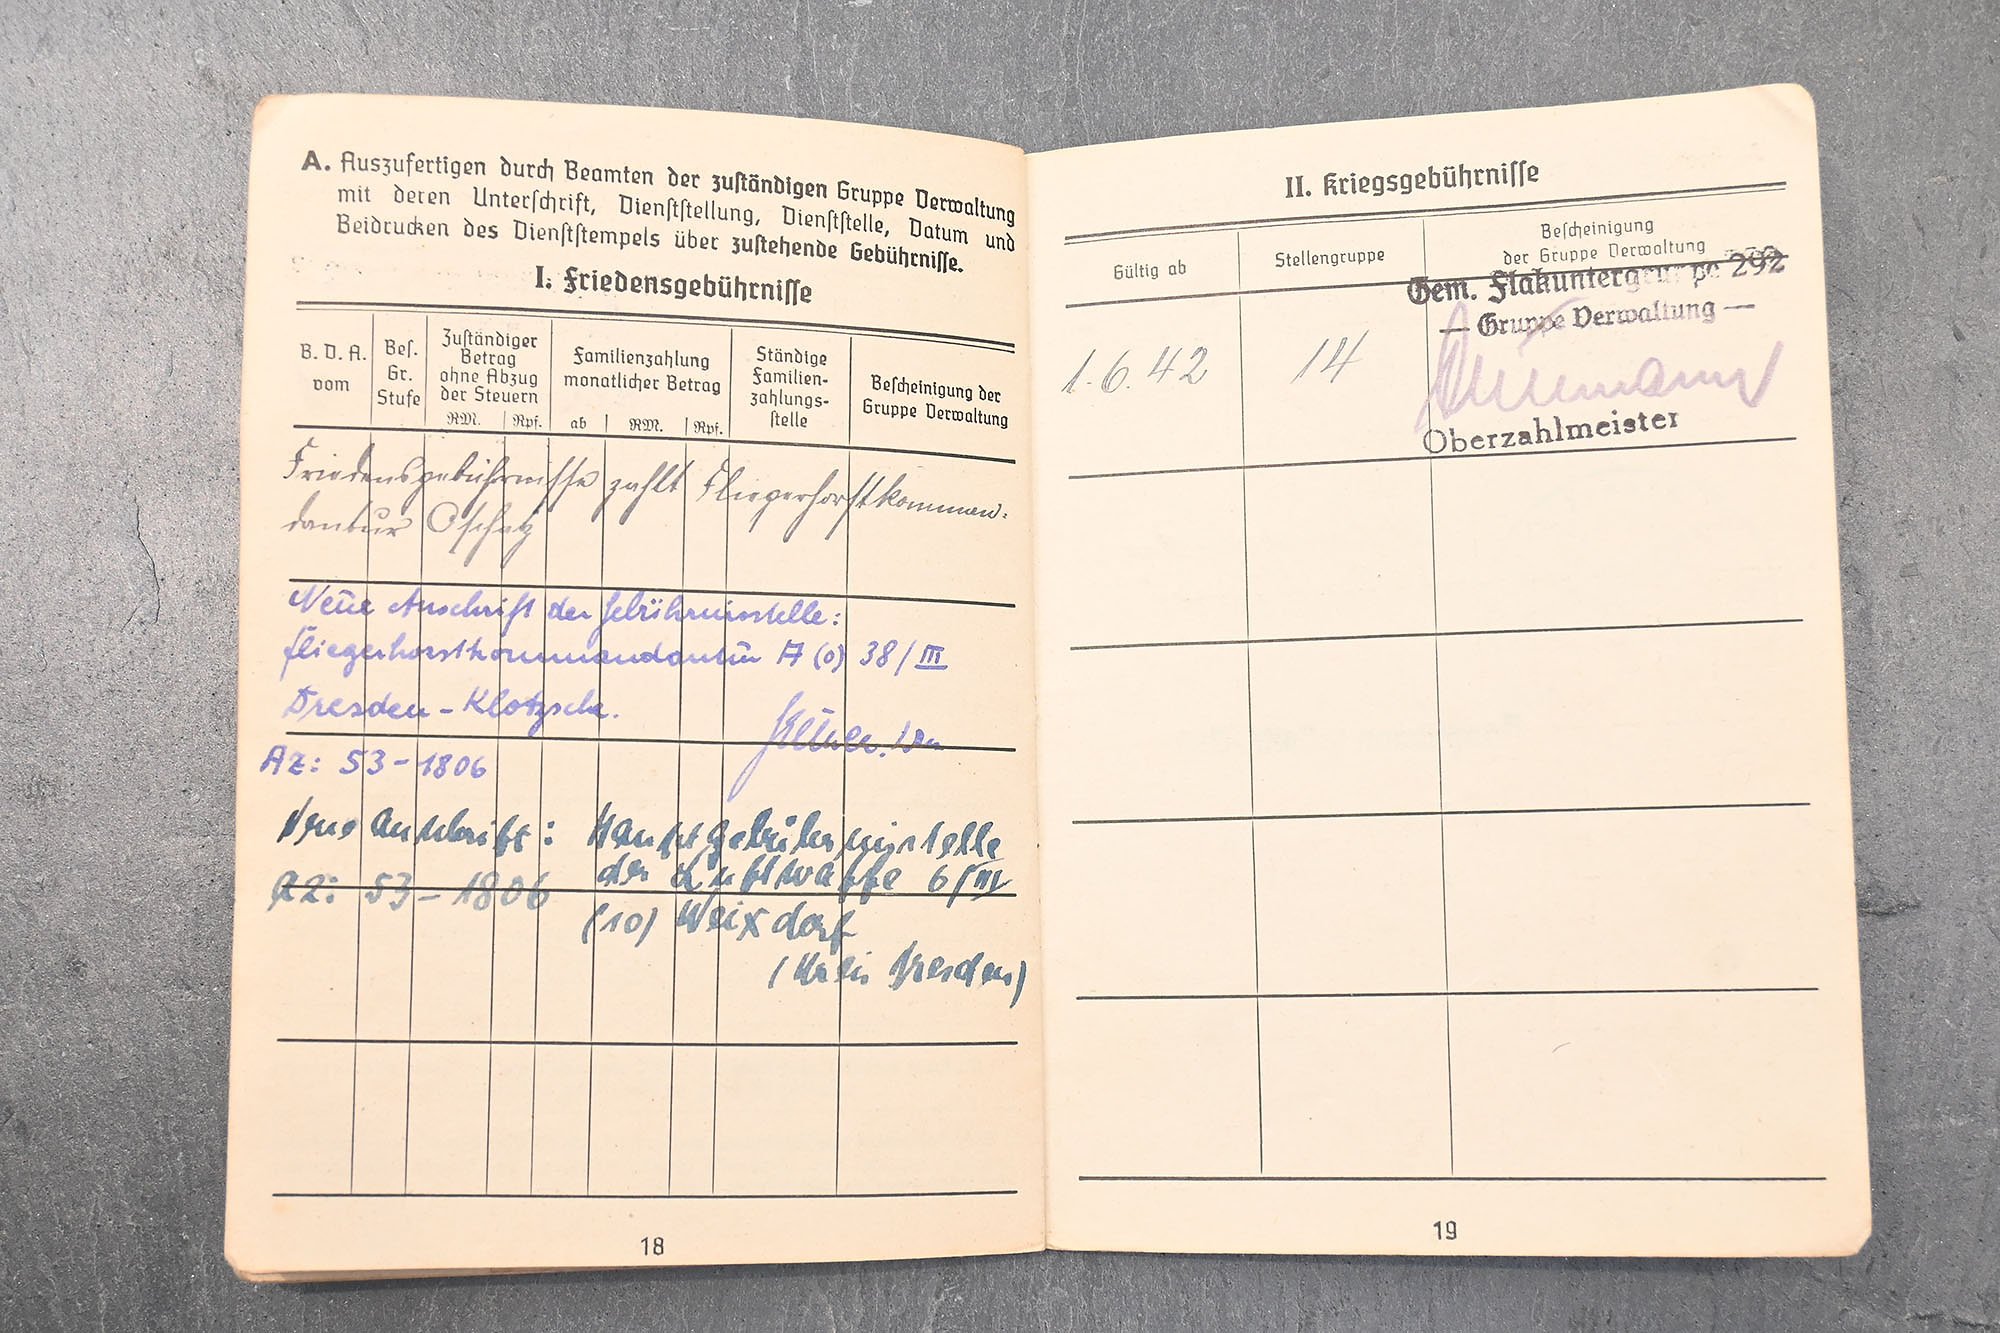 A. Auszufertigen durch Beamten der zuständigen Gruppe Verwaltung
mit deren Unterschrift, Dienststellung, Dienststelle, Datum und
Beidrucken des Dienststempels über zustehende Gebührnisse.
I. Friedensgebührnisse
B. D. A. vom
Bes. Gr. Stufe
Zuständiger Betrag ohne Abzug der Steuern
RM. Rpf.
Familienzahlung monatlicher Betrag
ab RM. Rpf.
Ständige Familien-zahlungs-stelle
Bescheinigung der Gruppe Verwaltung
Friedensgebührnisse zahlt Fliegerhorstkomman-
dantur Oschatz
Neue Anschrift der Gebührnisstelle:
Fliegerhorstkommandantur A (o) 38/III
Dresden-Klotzsche.
Az: 53-1806
Neue Anschrift: Hauptgebührnisstelle
der Luftwaffe 6/III
Az: 53-1806
(10) Weixdorf
(Kreis Dresden)
18
II. Kriegsgebührnisse
Gültig ab
Stellengruppe
Bescheinigung
der Gruppe Verwaltung
Gem. Flakuntergruppe 292
— Gruppe Verwaltung —
1.6.42 14
Oberzahlmeister
19